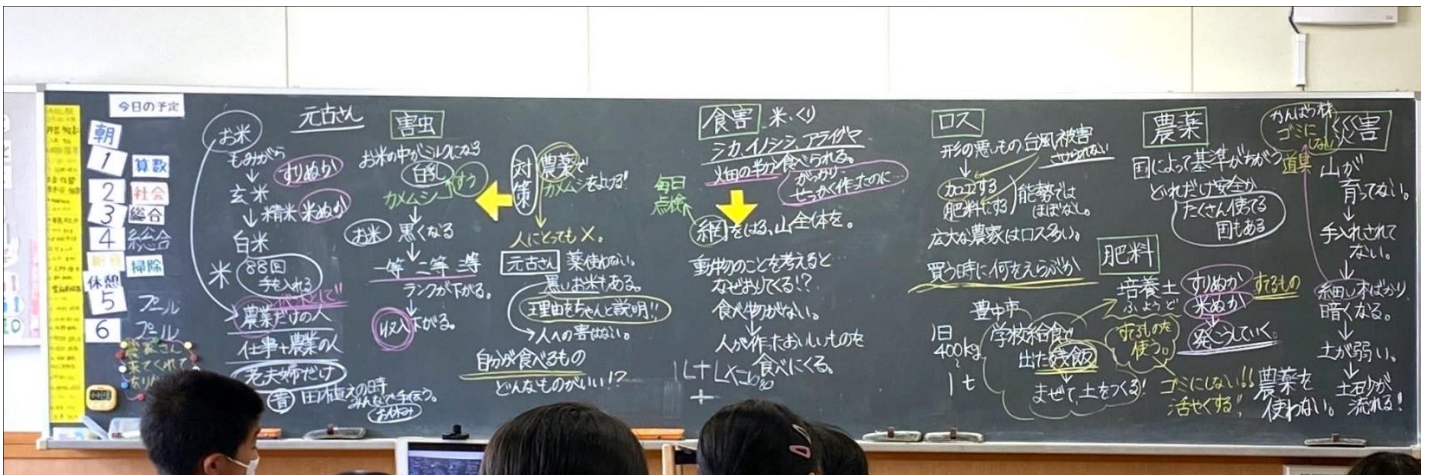 今日の予定
朝
1 算数
2 社会
3 総合
4 総合
掃除
休憩
5 プール
6 プール
農家さん
来てくれて
元古さん
お米
もみがら
すりぬか
玄米
精米 米ぬか
白米
米 88回
手を入れる
農業だけの人
仕事+農業の人
老夫婦だけ
昔 田植えの時
みんなで手伝う。
害虫
お米の中がミルクになる
白乳
カメムシ すう
お米 黒くなる
一等 二等 三等
ランクが下がる。
収入 下がる。
対策
農薬で
カメムシをよける!
人にとっても×。
元古さん 薬使わない。
黒いお米もある。
理由をちゃんと説明!!
人への害はない。
自分が食べるもの
どんなものがいい!?
食害 米、くり
シカ、イノシシ、アライグマ
畑の半分食べられる。
がっかり…
せっかく作ったのに…
毎日
点検
網をはる。山全体を。
動物のことを考えると…
なぜおりてくる!?
食べ物がない。
人が作ったおいしいものを
食べにくる。
ロス
形の悪いもの 台風被害
さけられない
加工する
肥料にする
能勢では
ほぼなし。
広大な農家はロス多い。
買う時に何をえらぶか
豊中市
1日
400kg
1t
学校給食で
出た残飯
まぜて、土をつくる!
農薬
国によって基準がちがう
どれだけ安全か
たくさん使ってる
国もある
肥料
培養土
ふようど
すりぬか
米ぬか
すてるもの
発こうしていく。
すてるものを
使う。
ゴミにしない!!
活やくする!!
農薬を
使わない。
かんばつ材
ゴミに
しない
道具
災害
山が
育ってない。
手入れされて
ない。
細い木ばかり
暗くなる。
土が弱い。
土砂が
流れる!